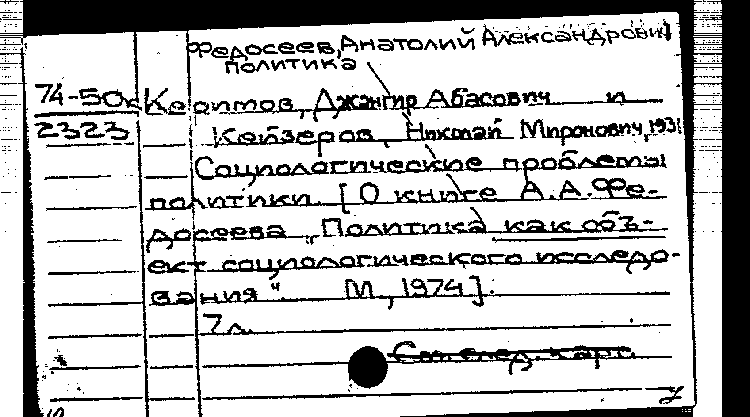 Федосеев, Анатолий Александрович
политика
74-50к Керимов, Джангир Абасович и
2323 Кейзеров, Николай Миронович, 193
Социологические проблемы
политики. [О книге А.А. Фе-
досеева „Политика как объ-
ект социологического исследо-
вания“. М., 1974].
7 л.